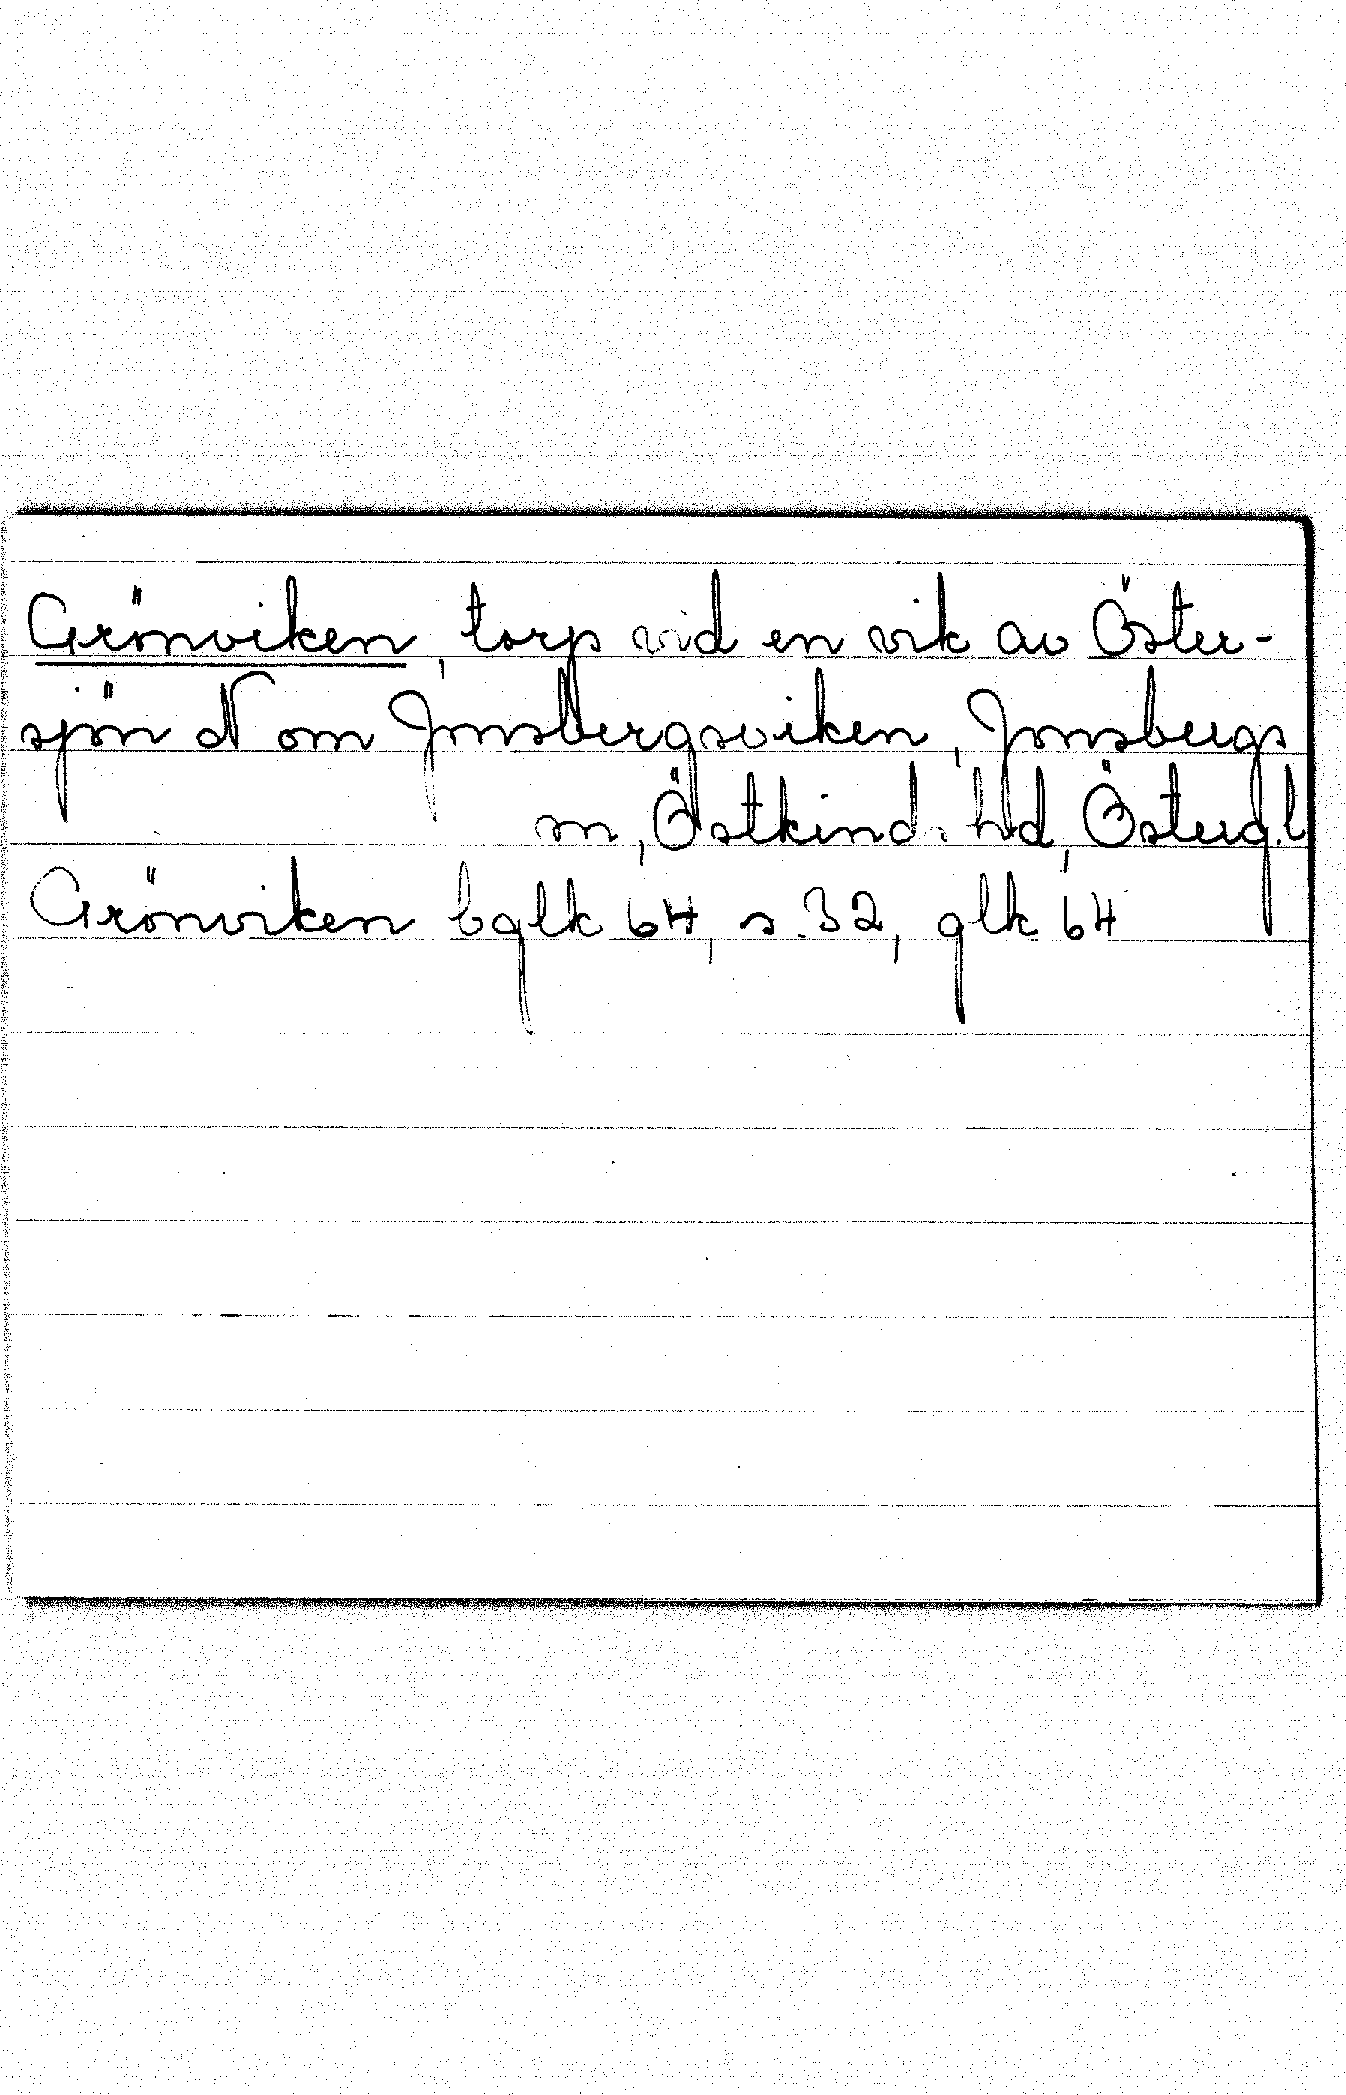 Grönviken, torp vid en vik av Öster-
sjön N om Jonsbergsviken, Jonsbergs
sn, Östkinds hd, Östergl.
Grönviken bglk 64, s. 32, glk 64